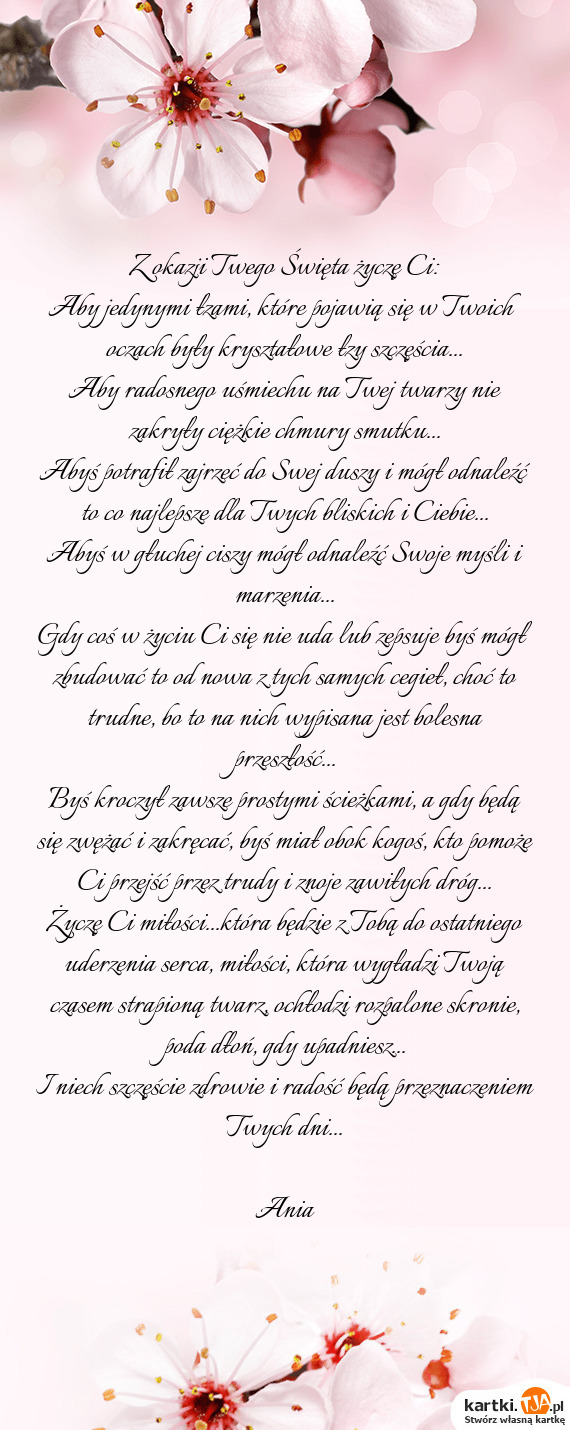 Z okazji Twego Święta życzę Ci:
Aby jedynymi łzami, które pojawią się w Twoich
oczach były kryształowe łzy szczęścia...
Aby radosnego uśmiechu na Twej twarzy nie
zakryły ciężkie chmury smutku...
Abyś potrafił zajrzeć do Swej duszy i mógł odnaleźć
to co najlepsze dla Twych bliskich i Ciebie...
Abyś w głuchej ciszy mógł odnaleźć Swoje myśli i
marzenia...
Gdy coś w życiu Ci się nie uda lub zepsuje byś mógł
zbudować to od nowa z tych samych cegieł, choć to
trudne, bo to na nich wypisana jest bolesna
przeszłość...
Byś kroczył zawsze prostymi ścieżkami, a gdy będą
się zwężać i zakręcać, byś miał obok kogoś, kto pomoże
Ci przejść przez trudy i znoje zawiłych dróg...
Życzę Ci miłości...która będzie z Tobą do ostatniego
uderzenia serca, miłości, która wygładzi Twoją
czasem strapioną twarz, ochłodzi rozpalone skronie,
poda dłoń, gdy upadniesz...
I niech szczęście zdrowie i radość będą przeznaczeniem
Twych dni...
Ania
kartki.TJA.pl
Stwórz własną kartkę